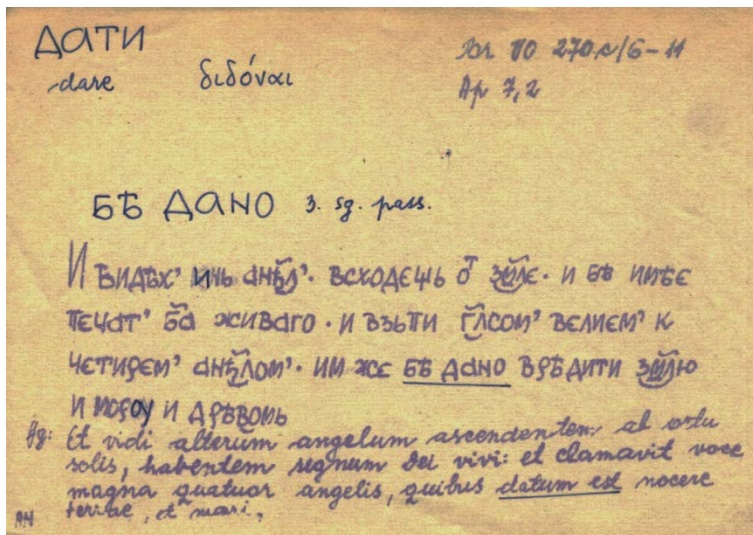 дати
dare διδόναι
Br VO 270a/6-11
Ap 7,2
бѣ дано 3. sg. pass.
И видѣх' инь анћл'· всходещь от змле· и бѣ имѣе
печат' ба живаго· и взьпи гласом' велием' к
четирем' анћлом'· им же бѣ дано врѣдити змлю
и мороу и
Vg: Et vidi alterum angelum ascendentem ab ortu
solis, habentem signum Dei vivi: et clamavit voce
magna quatuor angelis, quibus datum est nocere
terrae, et mari,